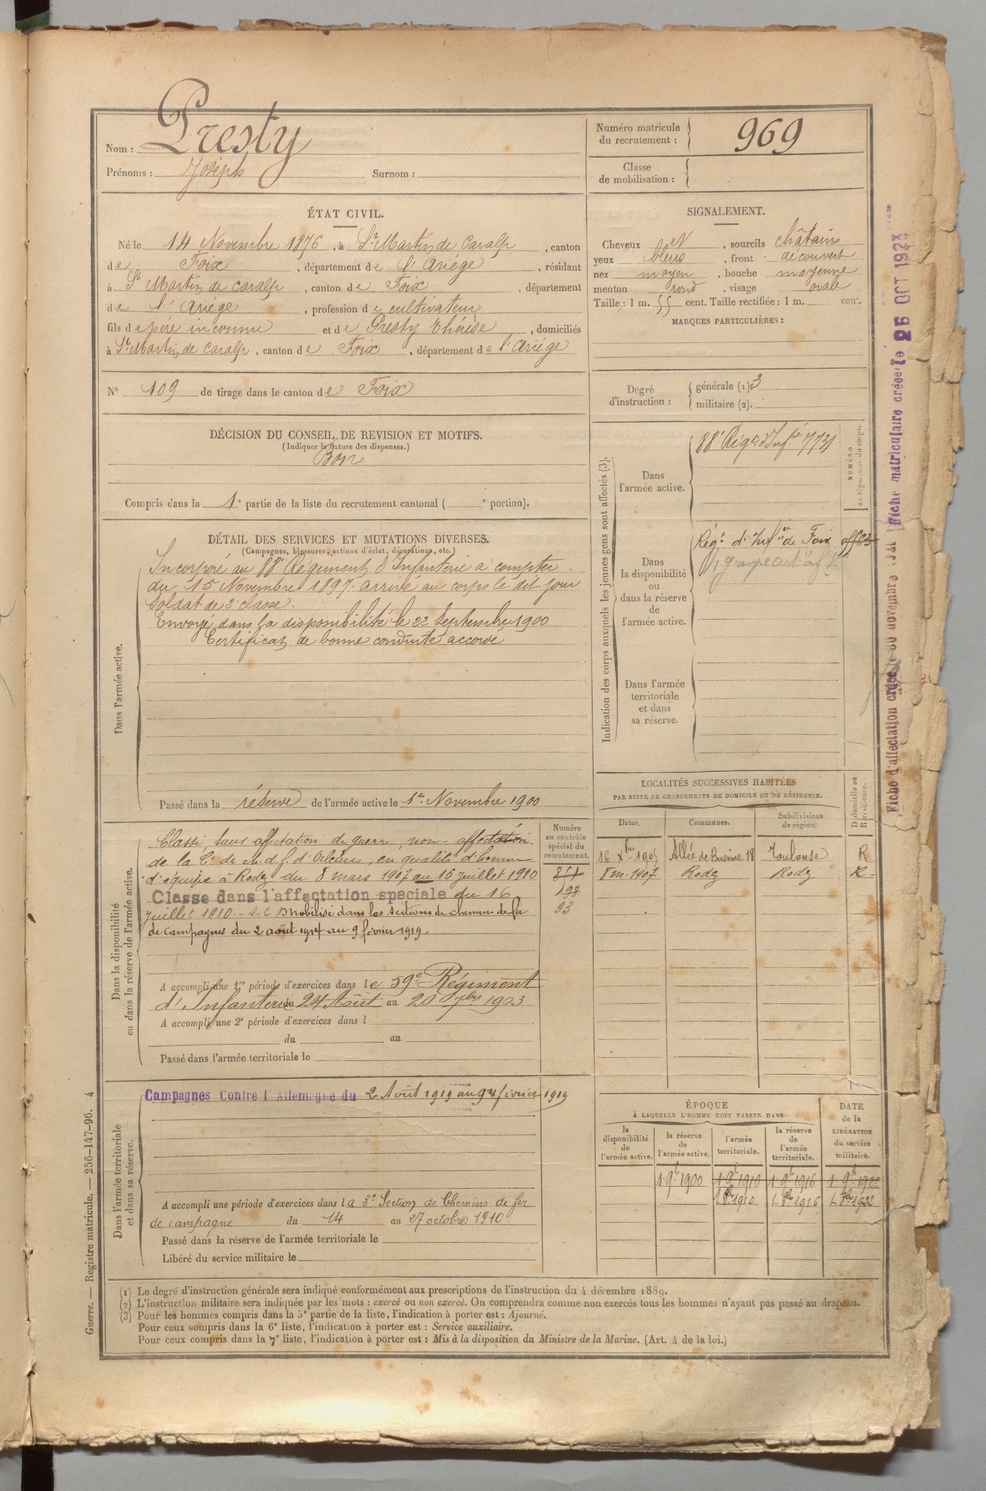 Nom : Presty
Prénoms : Joseph Surnom :
Numéro matricule du recrutement : 969
Classe de mobilisation :
ÉTAT CIVIL.
Né le 14 Novembre 1876, à St Martin de Caralp, canton
de Foix, département de l'Ariége, résidant
à St Martin de Caralp, canton de Foix, département
de l'Ariége, profession de cultivateur
fils de père inconnu et de Presty Thérèse, domiciliés
à St Martin de Caralp, canton de Foix, département de l'Ariége
N° 109 de tirage dans le canton de Foix
SIGNALEMENT.
Cheveux , sourcils châtains
yeux bleus, front découvert
nez moyen, bouche moyenne
menton rond, visage ovale
Taille : 1 m. 55 cent. Taille rectifiée : 1 m. cent.
MARQUES PARTICULIÈRES :
Degré d'instruction : générale (1) 3
militaire (2).
DÉCISION DU CONSEIL DE REVISION ET MOTIFS.
(Indiquer la nature des dispenses.)
Bon
Compris dans la 1e partie de la liste du recrutement cantonal ( e portion).
DÉTAIL DES SERVICES ET MUTATIONS DIVERSES.
(Campagnes, blessures, actions d'éclat, décorations, etc.)
Dans l'armée active.
Incorporé au 88e Régiment d'Infanterie à compter
du 15 Novembre 1897. arrivé au corps le dit jour
Soldat de 2e classe.
Envoyé dans la disponibilité le 22 Septembre 1900
Certificat de bonne conduite accordé
Passé dans la réserve de l'armée active le 1er Novembre 1900
Indication des corps auxquels les jeunes gens sont affectés (3).
NUMÉRO au répertoire du corps.
Dans l'armée active.
88e Régt d'Infie 7731
Dans la disponibilité ou dans la réserve de l'armée active.
Régt d'Infie de Foix
Dans l'armée territoriale et dans sa réserve.
Dans la disponibilité ou dans la réserve de l'armée active.
Numéro au contrôle spécial du recrutement.
Classé sans affectation de guerre, non-affectation
de la Cie de ch. d. f. d'Orléans, en qualité d'homme
d'équipe à Rodez du 8 mars 1907 au 15 juillet 1910
Classé dans l'affectation spéciale du 16
juillet 1910 - Mobilisé dans les sections de chemins de fer
de campagnes du 2 août 1914 au 9 février 1919.
198
93
A accompli une 1re période d'exercices dans le 59e Régiment
d'Infanterie du 24 Août au 20 7bre 1903
A accompli une 2e période d'exercices dans l
du au
Passé dans l'armée territoriale le
LOCALITÉS SUCCESSIVES HABITÉES
PAR SUITE DE CHANGEMENTS DE DOMICILE OU DE RÉSIDENCE.
Dates. Communes. Subdivisions de région. D. domicile ou R. résidence.
16 Xbre 1905 Allée de Brienne 18 Toulouse R
8 m. 1907 Rodez Rodez R
Dans l'armée territoriale et dans sa réserve.
Campagnes Contre l'Allemagne du 2 Août 1914 au 9 février 1919
A accompli une période d'exercices dans la 3e Section de Chemins de fer
de campagne du 14 au 27 octobre 1910
Passé dans la réserve de l'armée territoriale le
Libéré du service militaire le
ÉPOQUE
À LAQUELLE L'HOMME DOIT PASSER DANS
DATE de la LIBÉRATION du service militaire.
la disponibilité de l'armée active. la réserve de l'armée active. l'armée territoriale. la réserve de l'armée territoriale.
1.9e 1900 1.9e 1910 1.9e 1916 1.9e 1922
1.8bre 1910 1.8bre 1916 1.8bre 1922
(1) Le degré d'instruction générale sera indiqué conformément aux prescriptions de l'instruction du 4 décembre 1889.
(2) L'instruction militaire sera indiquée par les mots : exercé ou non exercé. On comprendra comme non exercés tous les hommes n'ayant pas passé au drapeau.
(3) Pour les hommes compris dans la 5e partie de la liste, l'indication à porter est : Ajourné.
Pour ceux compris dans la 6e liste, l'indication à porter est : Service auxiliaire.
Pour ceux compris dans la 7e liste, l'indication à porter est : Mis à la disposition du Ministre de la Marine. (Art. 4 de la loi.)
Guerre. — Registre matricule. — 256-147-96. 4
Fiche matriculaire créée le 26 OCT 192
Fiche d'affectation créée novembre